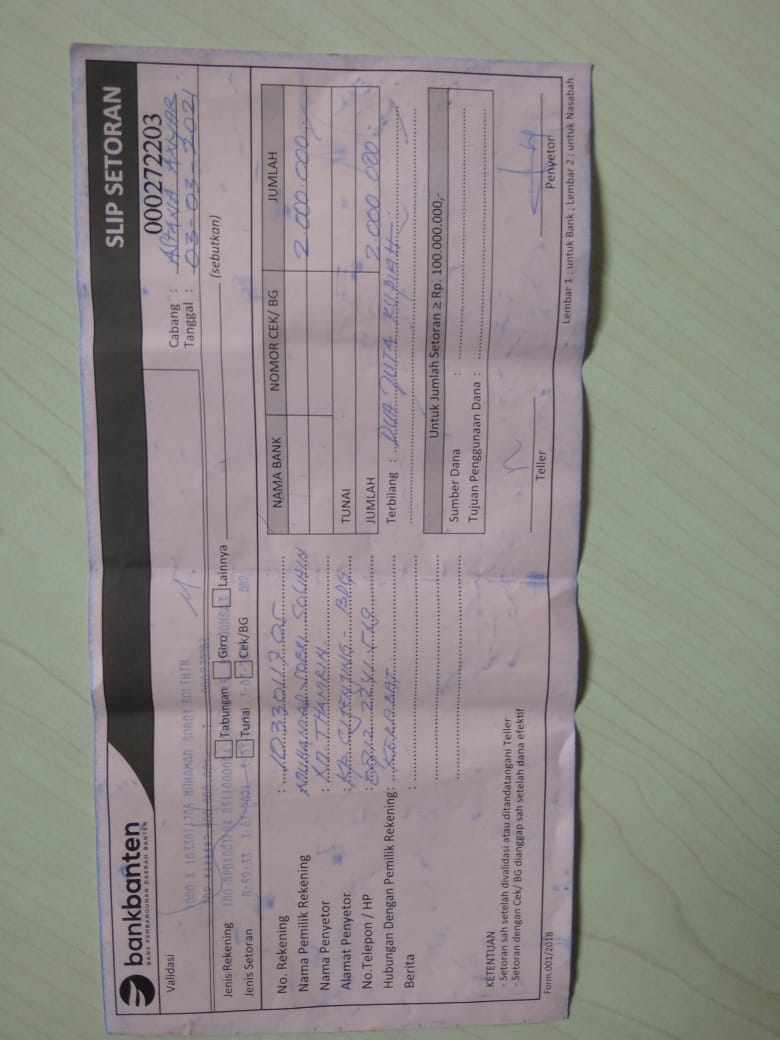 bankbanten
BANK PEMBANGUNAN DAERAH BANTEN
SLIP SETORAN
000272203
Validasi
Cabang : ASTANA ANYAR
Tanggal : 03-03-2021
1000 K 1033011705 MUHAMAD SOBRI SOLIHIN
Jenis Rekening Tabungan Giro Lainnya (sebutkan)
Jenis Setoran Tunai Cek/BG
8:59:33
No. Rekening : 1033011705
Nama Pemilik Rekening MUHAMAD SOBRI SOLIHIN
Nama Penyetor : KD. THAMRIN
Alamat Penyetor : - BDG
No.Telepon / HP :
Hubungan Dengan Pemilik Rekening: KERABAT
Berita :
NAMA BANK NOMOR CEK/ BG JUMLAH
2.000.000
TUNAI
JUMLAH 2.000.000
Terbilang : DUA JUTA RUPIAH
Untuk Jumlah Setoran ≥ Rp. 100.000.000,-
Sumber Dana :
Tujuan Penggunaan Dana :
KETENTUAN
- Setoran sah setelah divalidasi atau ditandatangani Teller
- Setoran dengan Cek/ BG dianggap sah setelah dana efektif
Teller
Penyetor
Form.001/2018
Lembar 1 : untuk Bank ; Lembar 2 : untuk Nasabah